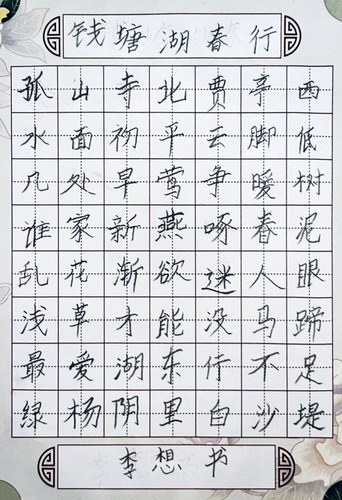 钱塘湖春行
孤山寺北贾亭西
水面初平云脚低
几处早莺争暖树
谁家新燕啄春泥
乱花渐欲迷人眼
浅草才能没马蹄
最爱湖东行不足
绿杨阴里白沙堤
李想书